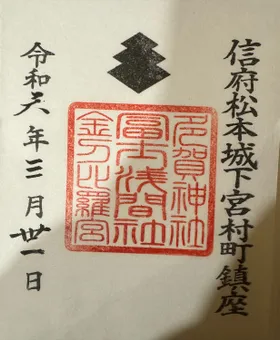 信府松本城下宮村町鎮座
多賀神社
冨士浅間社
金刀比羅宮
令和六年三月卅一日